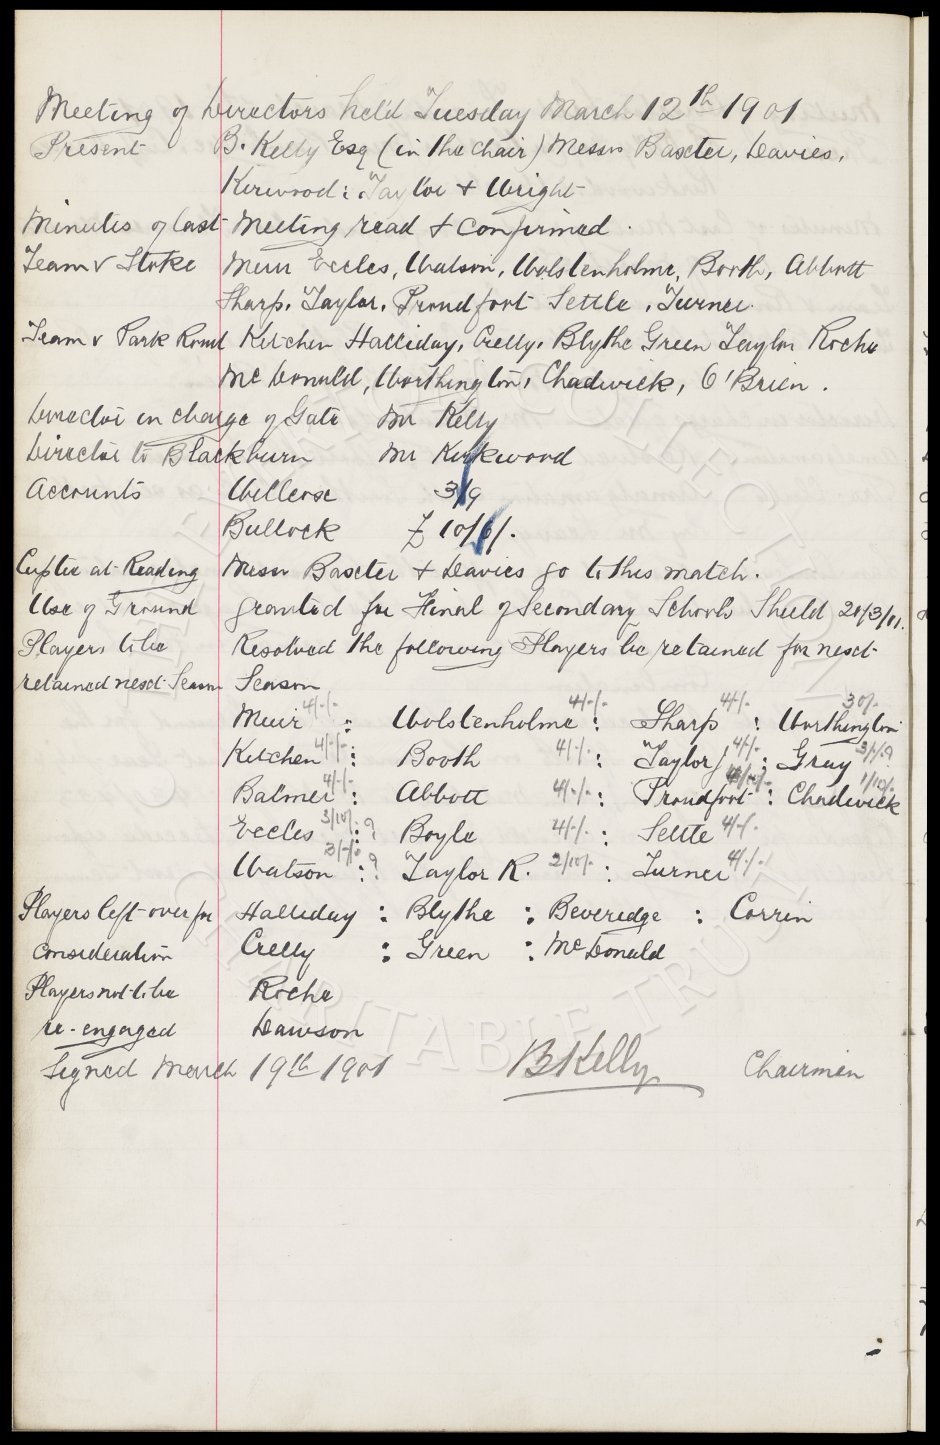 Meeting of Directors held Tuesday March 12th 1901
Present B. Kelly Esq (in the chair) Messrs Baxter, Davies,
Kirwood: Taylor & Wright
Minutes of last Meeting read & confirmed.
Team v Stoke Muir Eccles, Watson, Wolstenholme, Booth, Abbott
Sharp, Taylor, Proudfoot Settle, Turner.
Team v Park Road Kitchen Halliday, Crelly, Blythe Green Taylor Roche
McDonald, Worthington, Chadwick, O'Brien.
Director in charge of Gate Mr Kelly
Director to Blackburn Mr Kirkwood
Accounts 3/9
Bullock £ 10/6/.
Cuptie at Reading Messrs Baxter & Davies go to this match.
Use of Ground granted for Final of Secondary Schools Sheild 20/3/01.
Players to be Resolved the following Players be retained for next
retained next Season Season
Muir 4/-/- : Wolstenholme 4/-/- : Sharp 4/-/- : Worthington 30/-
Kitchen 4/-/- : Booth 4/-/- : Taylor J 4/-/- : Gray 3/-/-?
Balmer 4/-/- : Abbott 4/-/- : Proudfoot : Chadwick 1/10/-
Eccles 3/10/- : ? Boyle 4/-/- : Settle 4/-/-
Watson 3/-/- : ? Taylor R. 2/10/- : Turner 4/-/-
Players left over for Halliday : Blythe : Beveridge : Corrin
consideration Crelly : Green : McDonald
Players not to be Roche
re-engaged Dawson
Signed March 19th 1901 B Kelly Chairman
WATERMARK: COLLECTION CHARITABLE TRUST